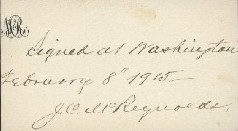 Signed at Washington
February 8th 1915
J. C. McReynolds.